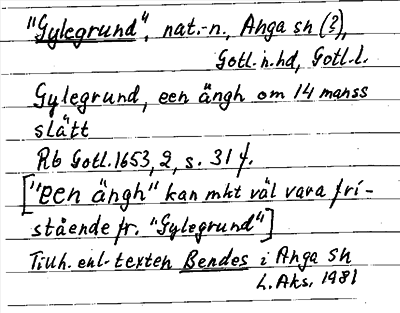 "Gylegrund", nat.-n., Anga sn (?),
Gotl.n.hd, Gotl.l.
Gylegrund, een ängh om 14 manss
slått
Rb Gotl.1653, 2, s. 31 f.
["een ängh" kan mkt väl vara fri-
stående fr. "Gylegrund"]
Tillh. enl. texten Bendes i Anga sn
L. Aks. 1981